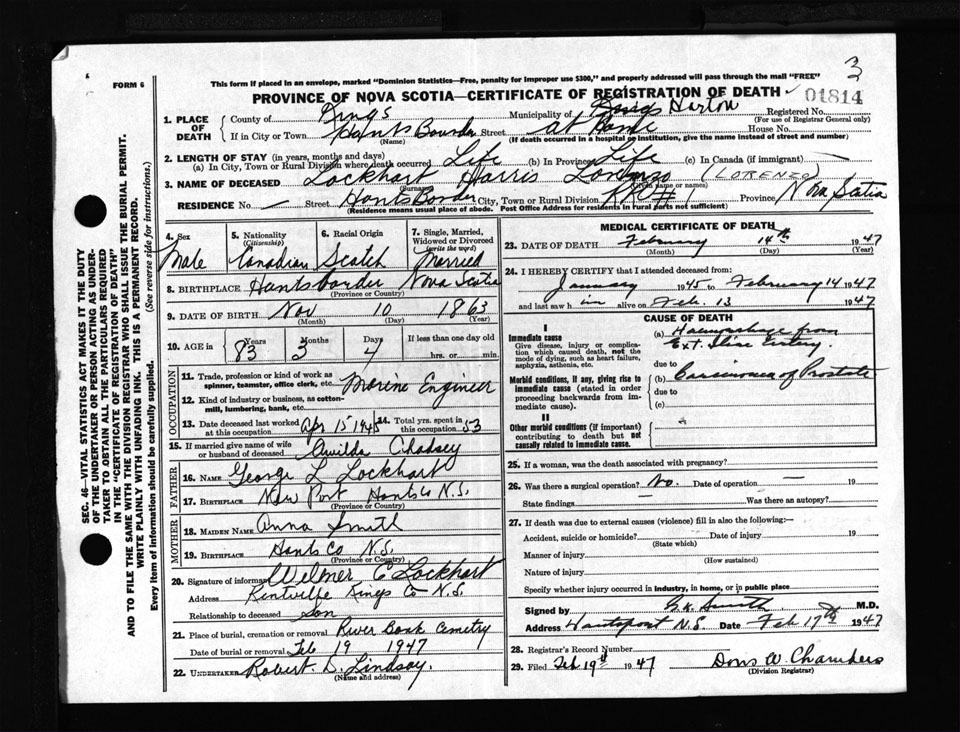 3
FORM 6
This form if placed in an envelope, marked "Dominion Statistics—Free, penalty for improper use $300," and properly addressed will pass through the mail "FREE"
PROVINCE OF NOVA SCOTIA—CERTIFICATE OF REGISTRATION OF DEATH
01814
1. PLACE OF DEATH
County of Kings Municipality of Kings Horton Registered No.
(For use of Registrar General only)
If in City or Town Hants Bourder Street at Home House No.
(Name) (If death occurred in a hospital or institution, give the name instead of street and number)
2. LENGTH OF STAY (in years, months and days)
(a) In City, Town or Rural Division where death occurred Life (b) In Province Life (c) In Canada (if immigrant) —
3. NAME OF DECEASED Lockhart Harris Lorenzo (LORENZO)
Surname (Given name or names)
RESIDENCE No — Street Hants Border City, Town or Rural Division RR#1 Province Nova Scotia
(Residence means usual place of abode. Post Office Address for residents in rural parts not sufficient)
4. Sex Male
5. Nationality (Citizenship) Canadian
6. Racial Origin Scotch
7. Single, Married, Widowed or Divorced (write the word) Married
8. BIRTHPLACE Hantsborder Nova Scotia
(Province or Country)
9. DATE OF BIRTH Nov 10 1863
(Month) (Day) (Year)
10. AGE in 83 Years 3 Months 4 Days If less than one day old hrs. or min.
OCCUPATION
11. Trade, profession or kind of work as spinner, teamster, office clerk, etc. Marine Engineer
12. Kind of industry or business, as cotton-mill, lumbering, bank, etc.
13. Date deceased last worked at this occupation Apr 15 1945 14. Total yrs. spent in this occupation 53
15. If married give name of wife or husband of deceased Awilda Chadsey
FATHER
16. NAME George L Lockhart
17. BIRTHPLACE New Port Hants Co N.S.
(Province or Country)
MOTHER
18. MAIDEN NAME Anna Smith
19. BIRTHPLACE Hants Co N.S.
(Province or Country)
20. Signature of informant Welmer C Lockhart
Address Kentville Kings Co N.S.
Relationship to deceased Son
21. Place of burial, cremation or removal River Bank Cemetry
Date of burial or removal Feb 19 1947
22. UNDERTAKER Robert D. Lindsay.
(Name and address)
MEDICAL CERTIFICATE OF DEATH
23. DATE OF DEATH February 14th 1947
(Month) (Day) (Year)
24. I HEREBY CERTIFY that I attended deceased from:
January 1945 to February 14 1947
and last saw him alive on Feb. 13 1947
CAUSE OF DEATH
I
Immediate cause
Give disease, injury or complication which caused death, not the mode of dying, such as heart failure, asphyxia, asthenia, etc.
(a) Haemorrhage from Ext. Iliac Artery.
due to
Morbid conditions, if any, giving rise to immediate cause (stated in order proceeding backwards from immediate cause).
(b) Carcinoma of Prostate
due to
(c)
II
Other morbid conditions (if important) contributing to death but not causally related to immediate cause.
25. If a woman, was the death associated with pregnancy?
26. Was there a surgical operation? No. Date of operation — 19
State findings — Was there an autopsy?
27. If death was due to external causes (violence) fill in also the following:—
Accident, suicide or homicide? Date of injury 19
(State which)
Manner of injury
(How sustained)
Nature of injury
Specify whether injury occurred in Industry, in home, or in public place
Signed by G.K. Smith M.D.
Address Hantsport N.S. Date Feb 17th 1947
28. Registrar's Record Number
29. Filed Feb. 19th 1947 Doris W. Chambers
(Division Registrar)
SEC. 46—VITAL STATISTICS ACT MAKES IT THE DUTY
OF THE UNDERTAKER OR PERSON ACTING AS UNDER-
TAKER TO OBTAIN ALL THE PARTICULARS REQUIRED
IN THE "CERTIFICATE OF REGISTRATION OF DEATH"
AND TO FILE THE SAME WITH THE DIVISION REGISTRAR WHO SHALL ISSUE THE BURIAL PERMIT.
WRITE PLAINLY WITH UNFADING INK. THIS IS A PERMANENT RECORD.
Every item of information should be carefully supplied. (See reverse side for instructions.)